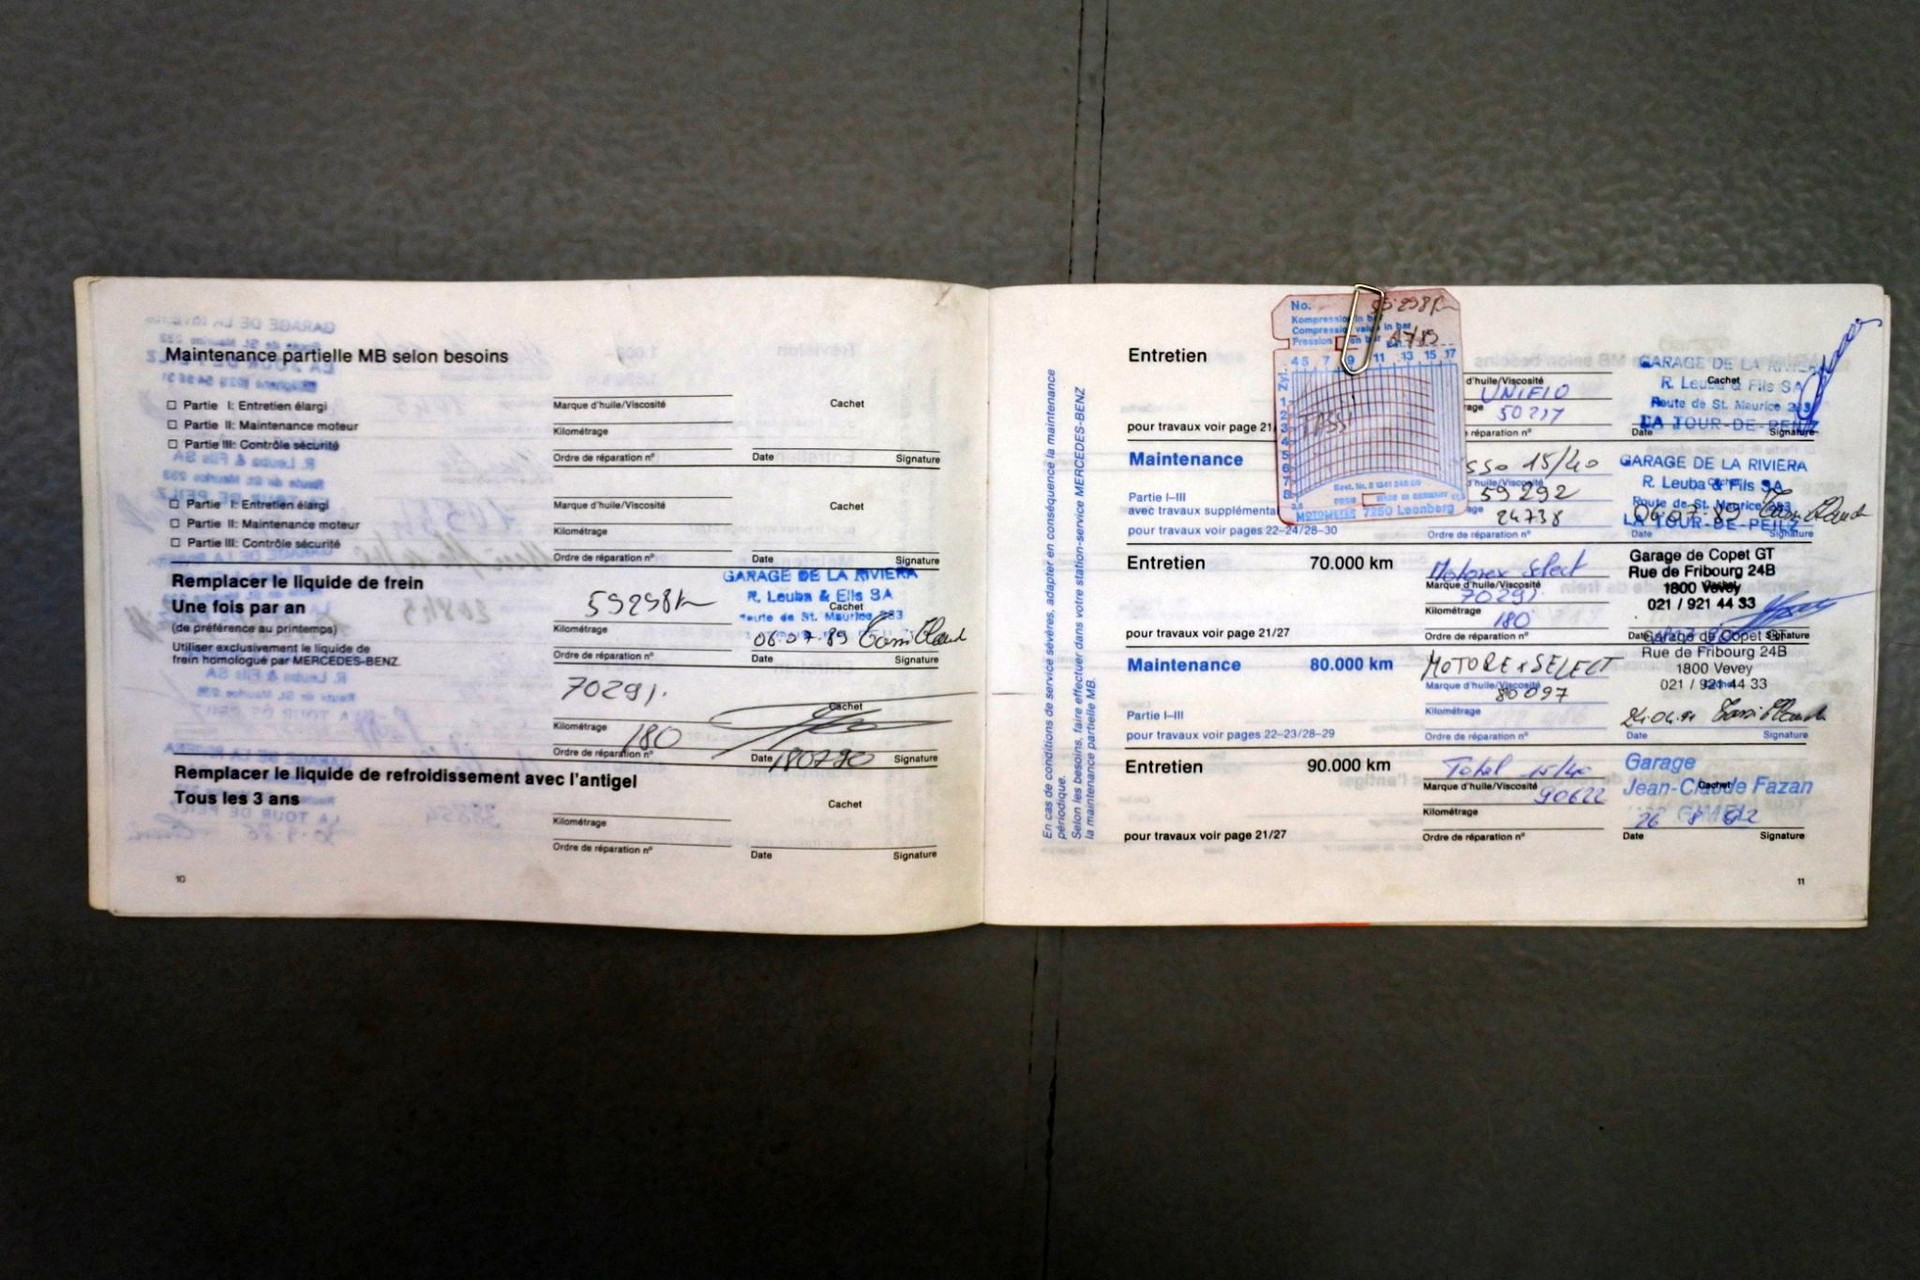 Maintenance partielle MB selon besoins
Partie I: Entretien élargi
Partie II: Maintenance moteur
Partie III: Contrôle sécurité
Marque d'huile/Viscosité
Kilométrage
Ordre de réparation n°
Cachet
Date
Signature
Partie I: Entretien élargi
Partie II: Maintenance moteur
Partie III: Contrôle sécurité
Marque d'huile/Viscosité
Kilométrage
Ordre de réparation n°
Cachet
Date
Signature
Remplacer le liquide de frein
Une fois par an
(de préférence au printemps)
Utiliser exclusivement le liquide de
frein homologué par MERCEDES-BENZ.
59298 km
Kilométrage
Ordre de réparation n°
GARAGE DE LA RIVIERA
R. Leuba & Fils SA
Route de St. Maurice 233
Cachet
06.07.89
Date
Signature
70291.
Kilométrage
180
Ordre de réparation n°
Cachet
Date 180790
Signature
Remplacer le liquide de refroidissement avec l'antigel
Tous les 3 ans
Kilométrage
Ordre de réparation n°
Cachet
Date
Signature
10
En cas de conditions de service sévères, adapter en conséquence la maintenance
périodique.
Selon les besoins, faire effectuer dans votre station-service MERCEDES-BENZ
la maintenance partielle MB.
Entretien
pour travaux voir page 21/
d'huile/Viscosité
UNIFLO
50217
réparation n°
GARAGE DE LA RIVIERA
R. Leuba & Fils SA
Cachet
Route de St. Maurice 233
LA TOUR-DE-PEILZ
Date
Signature
No.
Kompression in bar
Compression value in bar
Pression en bar
4 5 7 9 11 13 15 17
Zyl.
1
2
3
4
5
6
7
8
TASSI
MOTOMETER 7250 Leonberg
Maintenance
Partie I–III
avec travaux supplémenta
pour travaux voir pages 22–24/28–30
sso 15/40
59292
24738
Ordre de réparation n°
GARAGE DE LA RIVIERA
R. Leuba & Fils SA
Route de St. Maurice 233
LA TOUR-DE-PEILZ
06.07.89
Date
Signature
Entretien
70.000 km
pour travaux voir page 21/27
Motorex Select
Marque d'huile/Viscosité
70291
Kilométrage
180
Ordre de réparation n°
Garage de Copet GT
Rue de Fribourg 24B
1800 Vevey
Cachet
021 / 921 44 33
Date
Signature
Maintenance
80.000 km
Partie I–III
pour travaux voir pages 22–23/28–29
MOTOREX SELECT
Marque d'huile/Viscosité
80097
Kilométrage
Ordre de réparation n°
Garage de Copet GT
Rue de Fribourg 24B
1800 Vevey
021 / 921 44 33
24.04.91
Date
Signature
Entretien
90.000 km
pour travaux voir page 21/27
Total 15/40
Marque d'huile/Viscosité
90622
Kilométrage
Ordre de réparation n°
Garage
Jean-Claude Fazan
Cachet
26 8 92
Date
Signature
11